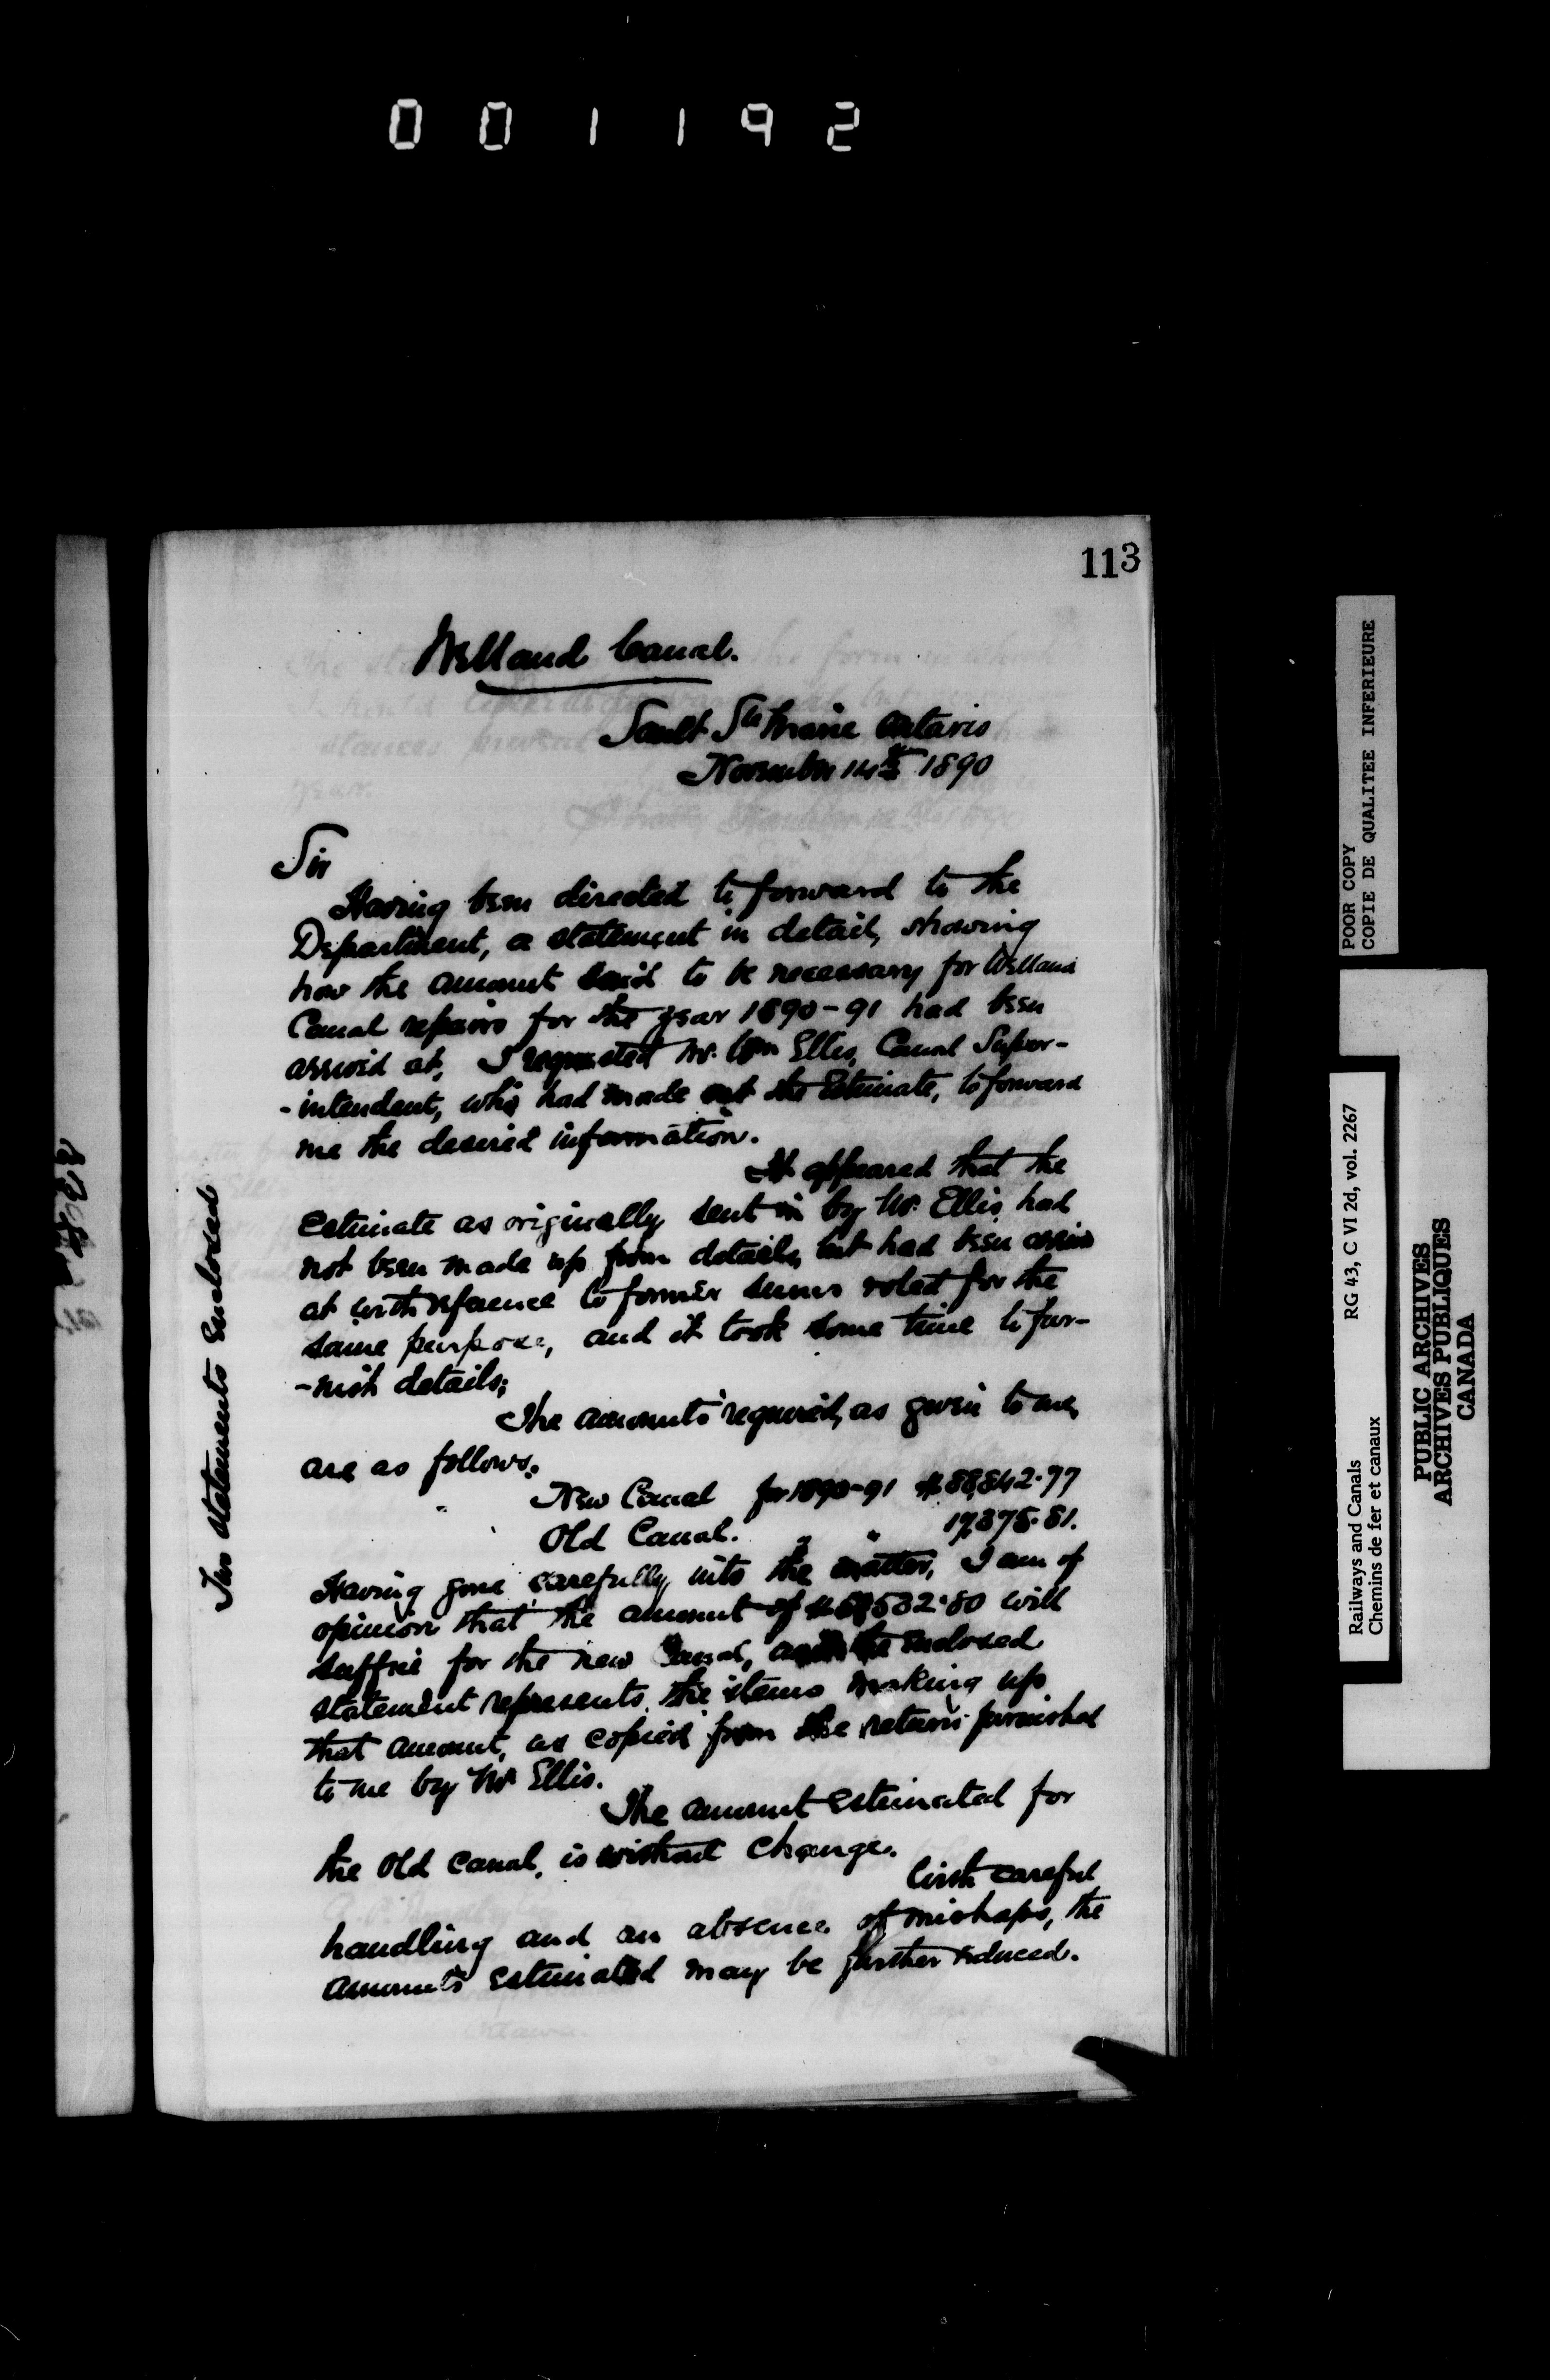 001192
113
Welland Canal.
Sault Ste Marie Ontario
November 14th 1890
Sir
Having been directed to forward to the
Department, a statement in detail, showing
how the amount said to be necessary for Welland
Canal repairs for the year 1890-91 had been
arrived at, I requested Mr. Wm Ellis, Canal Super-
-intendent, who had made out the Estimate, to forward
me the desired information.
It appeared that the
Estimate as originally sent in by Mr. Ellis, had
not been made up from details, but had been arrived
at with reference to former sums voted for the
same purpose, and it took some time to fur-
-nish details;
The amounts required, as given to me,
are as follows.
New Canal for 1890-91 $88,842.77
Old Canal. " " 17,375.81.
Having gone carefully into the matter, I am of
opinion that the amount of will
suffice for the new Canal, and the enclosed
statement represents the items making up
that amount, as copied from the returns furnished
to me by Mr Ellis.
The amount estimated for
the Old Canal, is without change.
With careful
handling and an absence of mishaps, the
amounts estimated may be further reduced.
Two statements Enclosed
POOR COPY
COPIE DE QUALITEE INFERIEURE
RG 43, C VI 2d, vol. 2267
Railways and Canals
Chemins de fer et canaux
PUBLIC ARCHIVES
ARCHIVES PUBLIQUES
CANADA